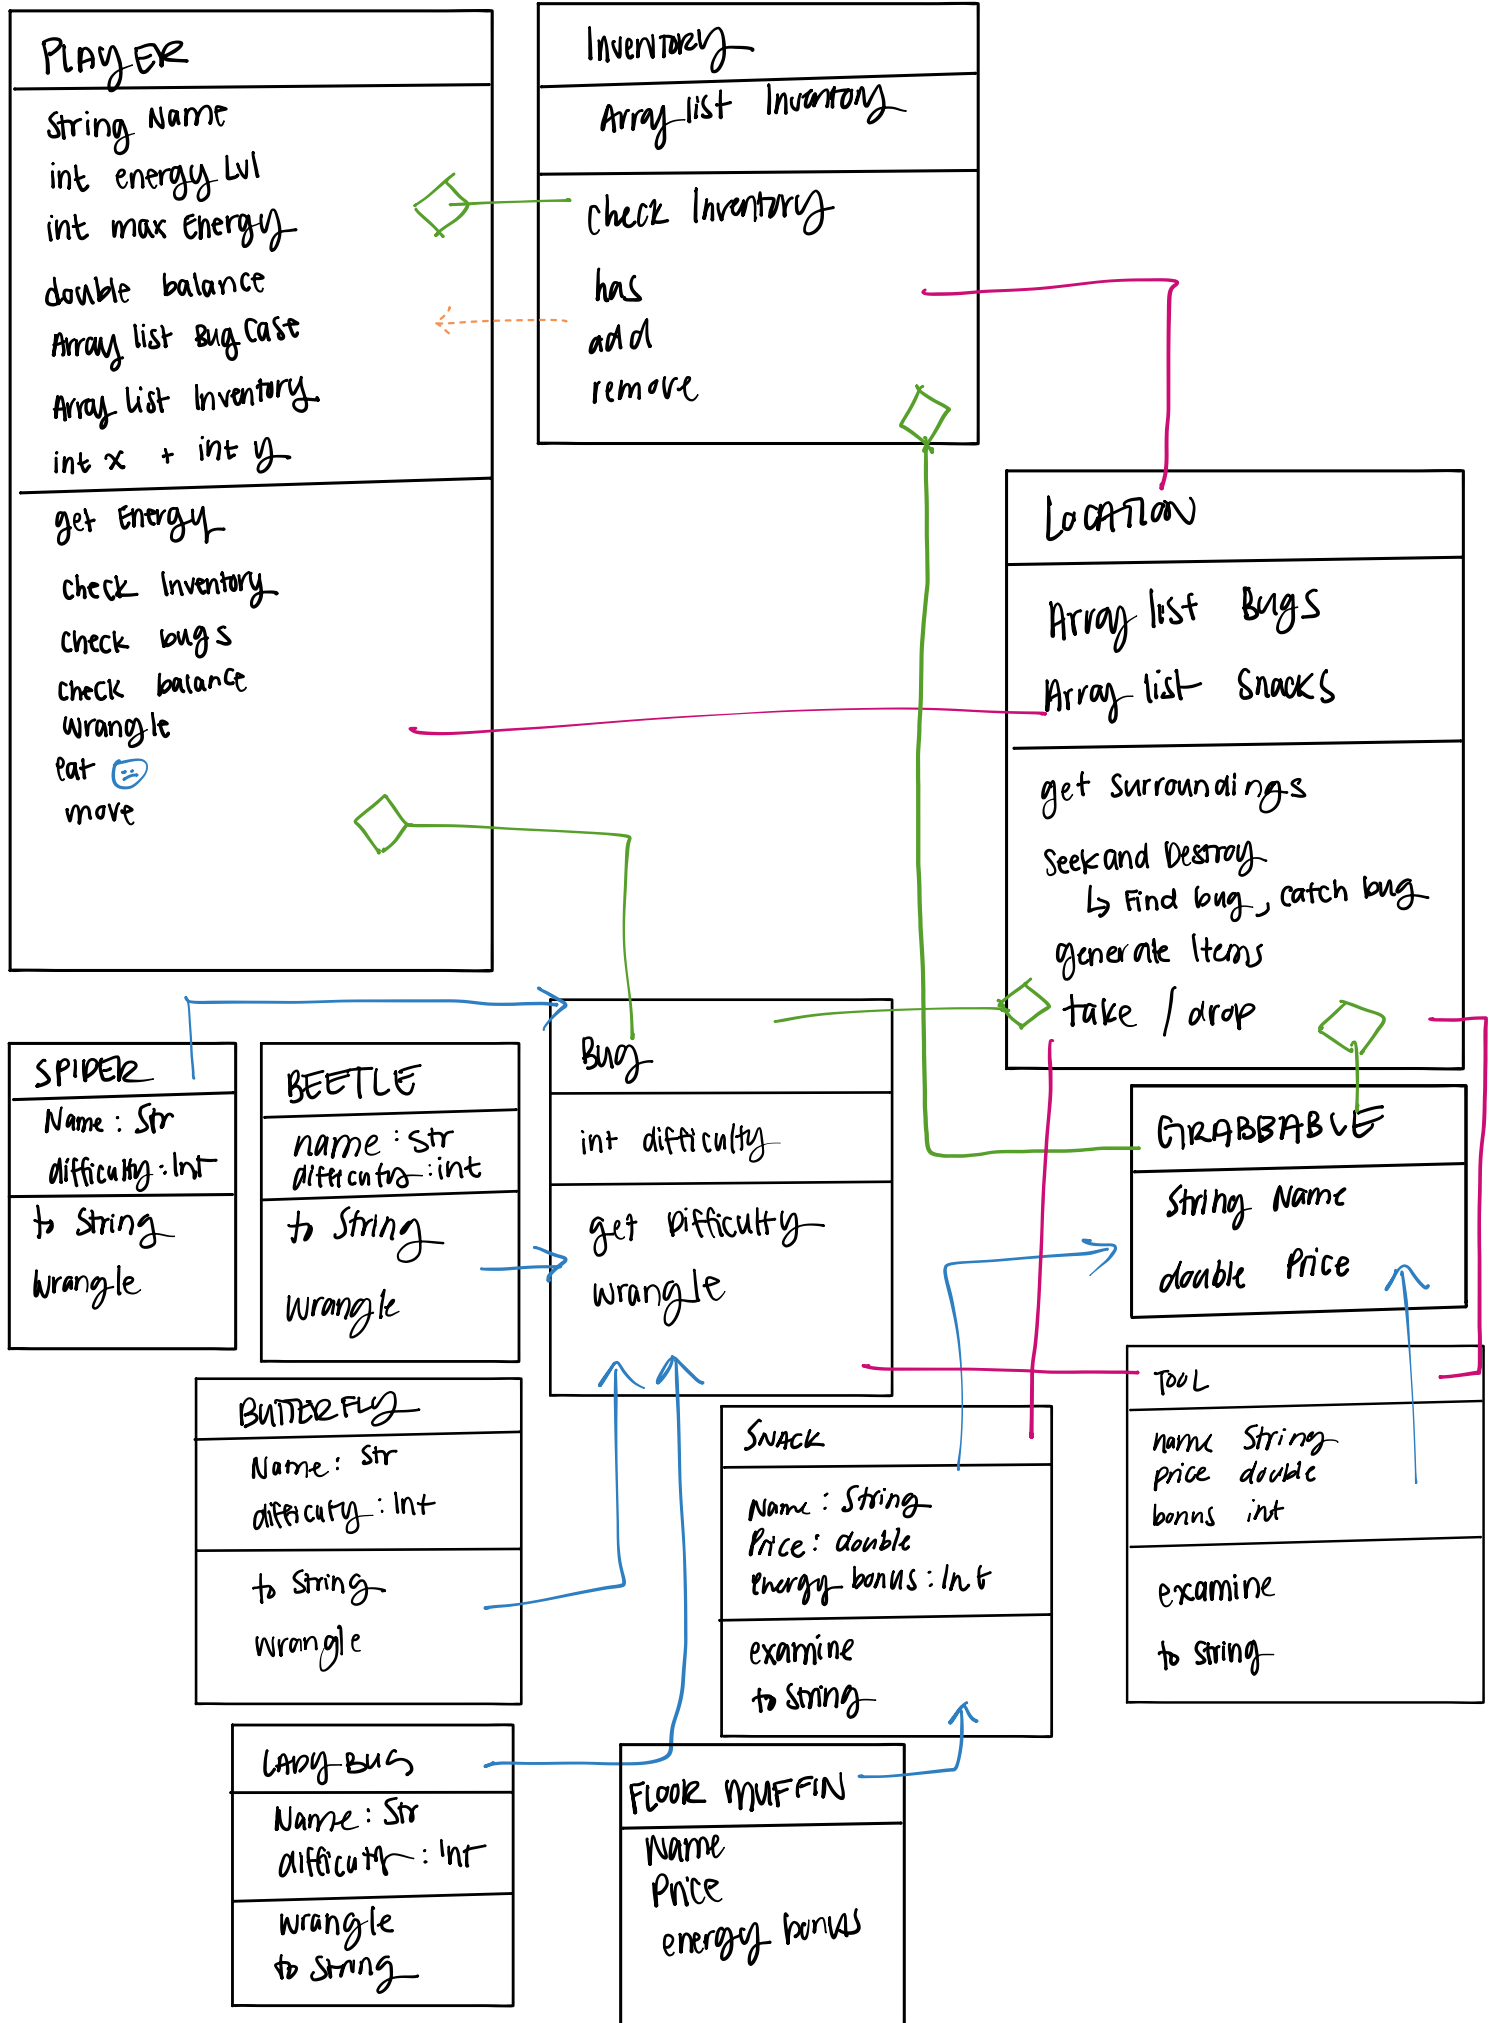 PLAYER
String Name
int energy Lvl
int max Energy
double balance
Array list Bug Case
Array List Inventory
int x + int y
get Energy
check Inventory
check bugs
check balance
wrangle
eat
move
Inventory
Array list Inventory
check Inventory
has
add
remove
LOCATION
Array list Bugs
Array list Snacks
get Surroundings
Seek and Destroy
↳ Find bug, catch bug
generate Items
take / drop
SPIDER
Name: Str
difficulty: Int
to String
Wrangle
BEETLE
name: Str
difficulty: int
to String
Wrangle
Bug
int difficulty
get Difficulty
wrangle
GRABBABLE
String Name
double Price
BUTTERFLY
Name: Str
difficuty: Int
to String
wrangle
SNACK
Name: String
Price: double
energy bonus: Int
examine
to String
TOOL
name String
price double
bonus int
examine
to string
LADYBUG
Name: Str
difficulty: Int
wrangle
to String
FLOOR MUFFIN
Name
Price
energy bonus